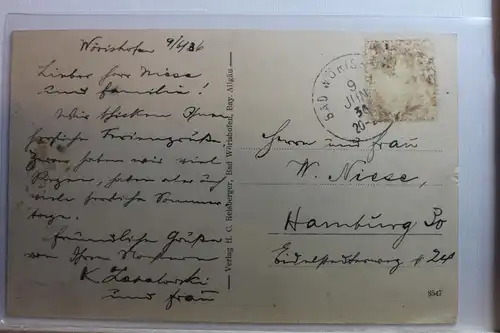 Wörishofen 9/6/36
Lieber Herr Niese
und Familie!
Wir schicken Ihnen
herzliche Feriengrüße,
Zwar haben wir viel
Regen, haben aber auch
viele herrliche Sommer
tage.
Freundliche Grüße
von Ihren
K. und Frau
Verlag H. C. Reisberger, Bad Wörishofen, Bay. Allgäu
BAD WÖRIS
9
JUN
36
20-
Herrn und Frau
W. Niese,
Hamburg
8547